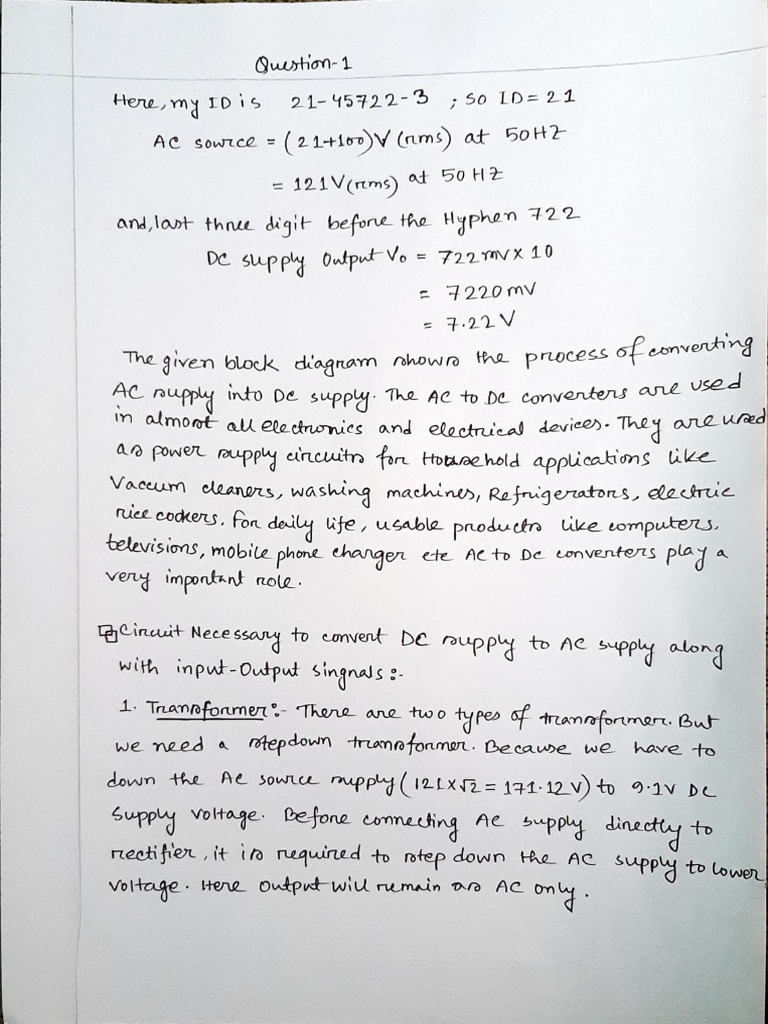 Question-1
Here, my ID is 21-45722-3 ; so ID = 21
AC source = (21+100)V (rms) at 50HZ
= 121V(rms) at 50 HZ
and, last three digit before the Hyphen 722
DC supply Output Vo = 722mv x 10
= 7220mv
= 7.22 V
The given block diagram shows the process of converting
AC supply into DC supply. The AC to DC converters are used
in almost all electronics and electrical devices. They are used
as power supply circuits for Household applications like
Vaccum cleaners, washing machines, Refrigerators, electric
rice cookers. For daily life, usable products like computers,
televisions, mobile phone charger etc AC to DC converters play a
very important role.
Circuit Necessary to convert DC supply to AC supply along
with input-Output singnals :-
1. Transformer :- There are two types of transformer. But
we need a stepdown transformer. Because we have to
down the AC source supply (121x√2 = 171.12V) to 9.1V DC
Supply Voltage. Before connecting AC supply directly to
rectifier, it is required to step down the AC supply to lower
voltage. Here Output will remain as AC only.